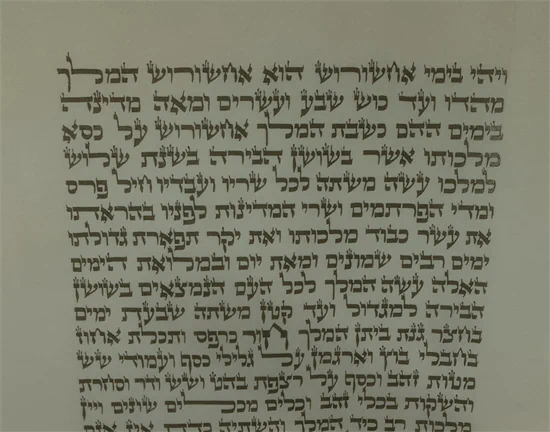 ויהי בימי אחשורוש הוא אחשורוש המלך
מהדו ועד כוש שבע ועשרים ומאה מדינה
בימים ההם כשבת המלך אחשורוש על כסא
מלכותו אשר בשושן הבירה בשנת שלוש
למלכו עשה משתה לכל שריו ועבדיו חיל פרס
ומדי הפרתמים ושרי המדינות לפניו בהראתו
את עשר כבוד מלכותו ואת יקר תפארת גדולתו
ימים רבים שמונים ומאת יום ובמלואת הימים
האלה עשה המלך לכל העם הנמצאים בשושן
הבירה למגדול ועד קטן משתה שבעת ימים
בחצר גנת ביתן המלך חור כרפס ותכלת אחוז
בחבלי בוץ וארגמן על גלילי כסף ועמודי שש
מטות זהב וכסף על רצפת בהט ושש ודר וסחרת
והשקות בכלי זהב וכלים מכלים שונים ויין
מלכות רב כיד המלך והשתיה כדת אין